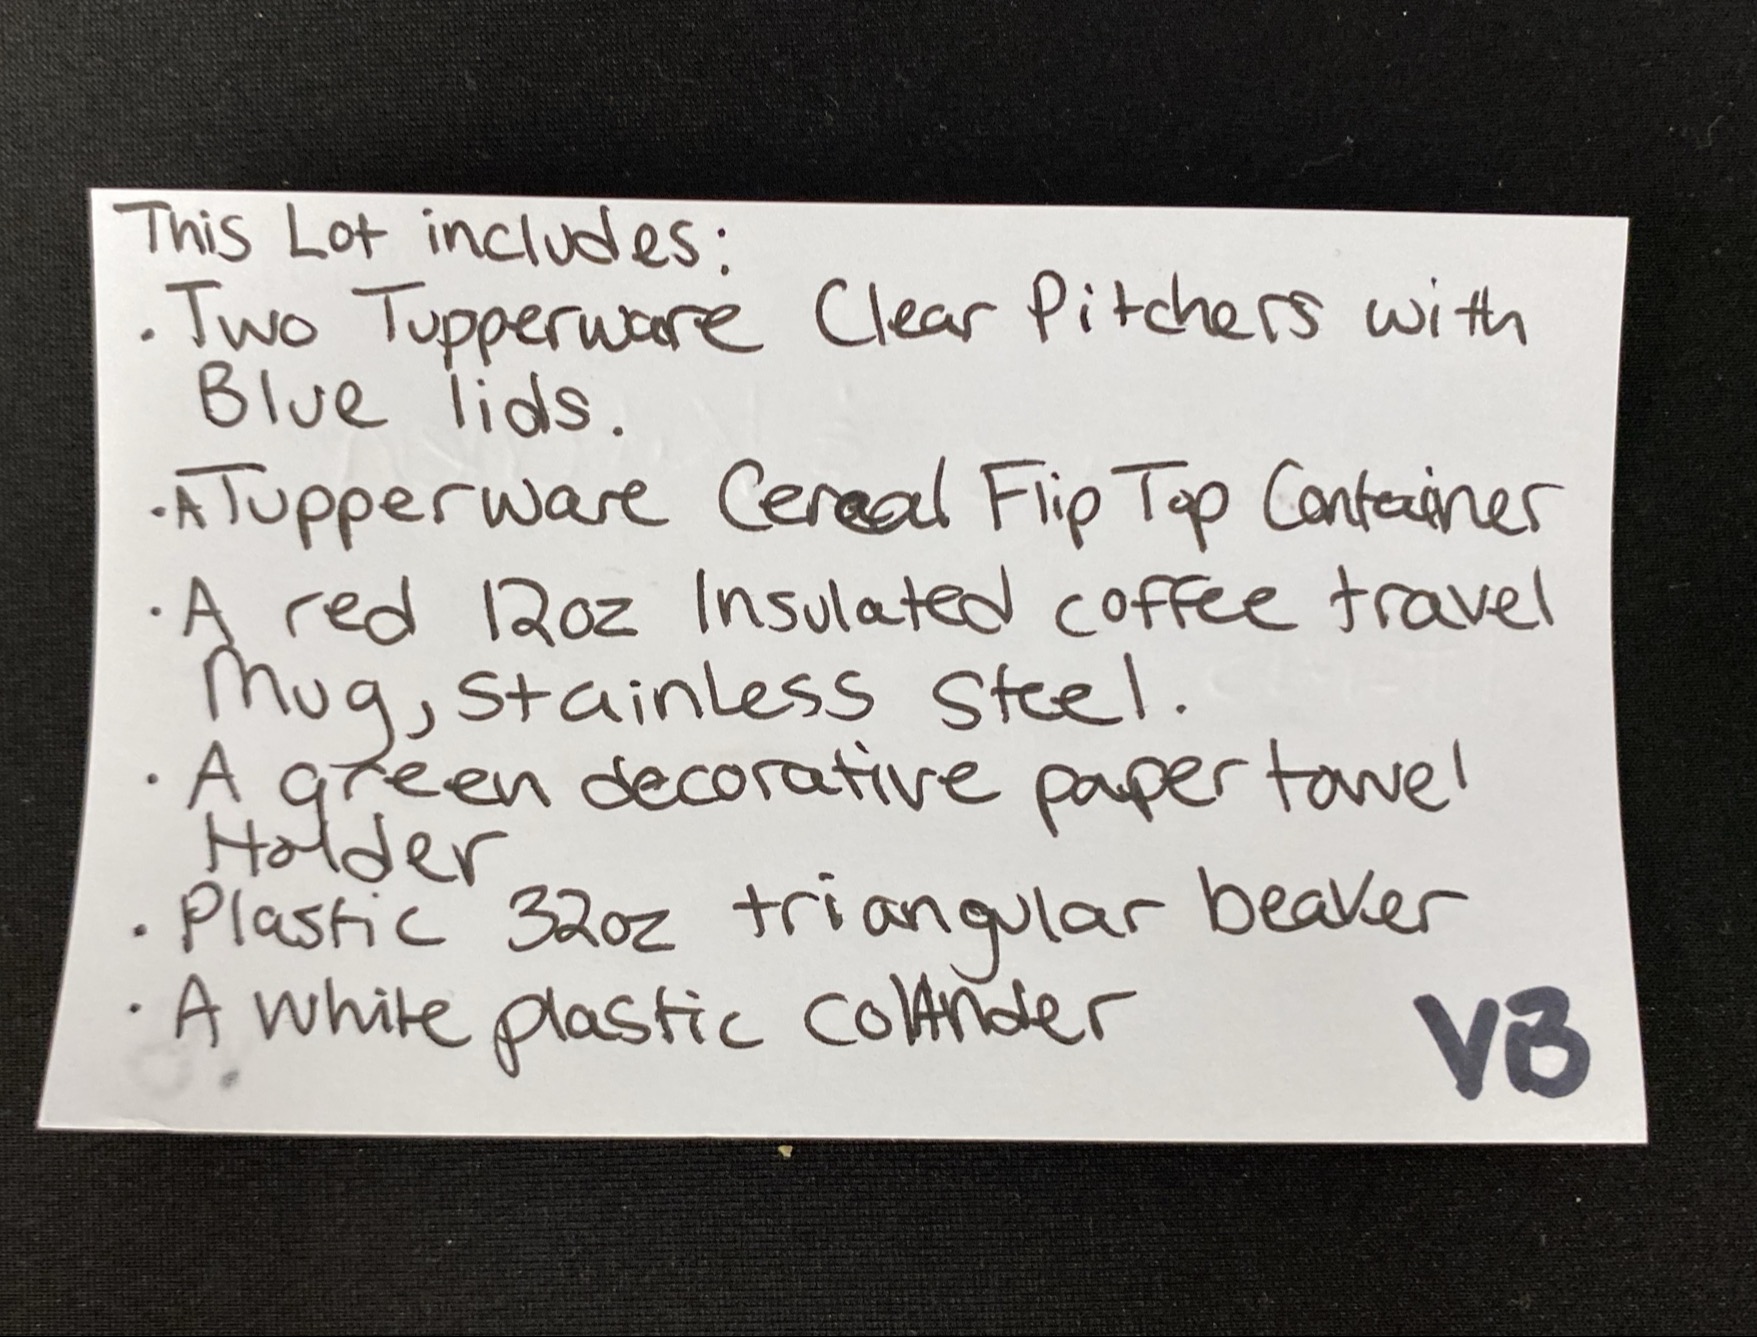 This Lot includes:
· Two Tupperware Clear Pitchers with
Blue lids.
· A Tupperware Cereal Flip Top Container
· A red 12oz Insulated coffee travel
Mug, Stainless Steel.
· A green decorative paper towel
Holder
· Plastic 32oz triangular beaker
· A white plastic colander
VB